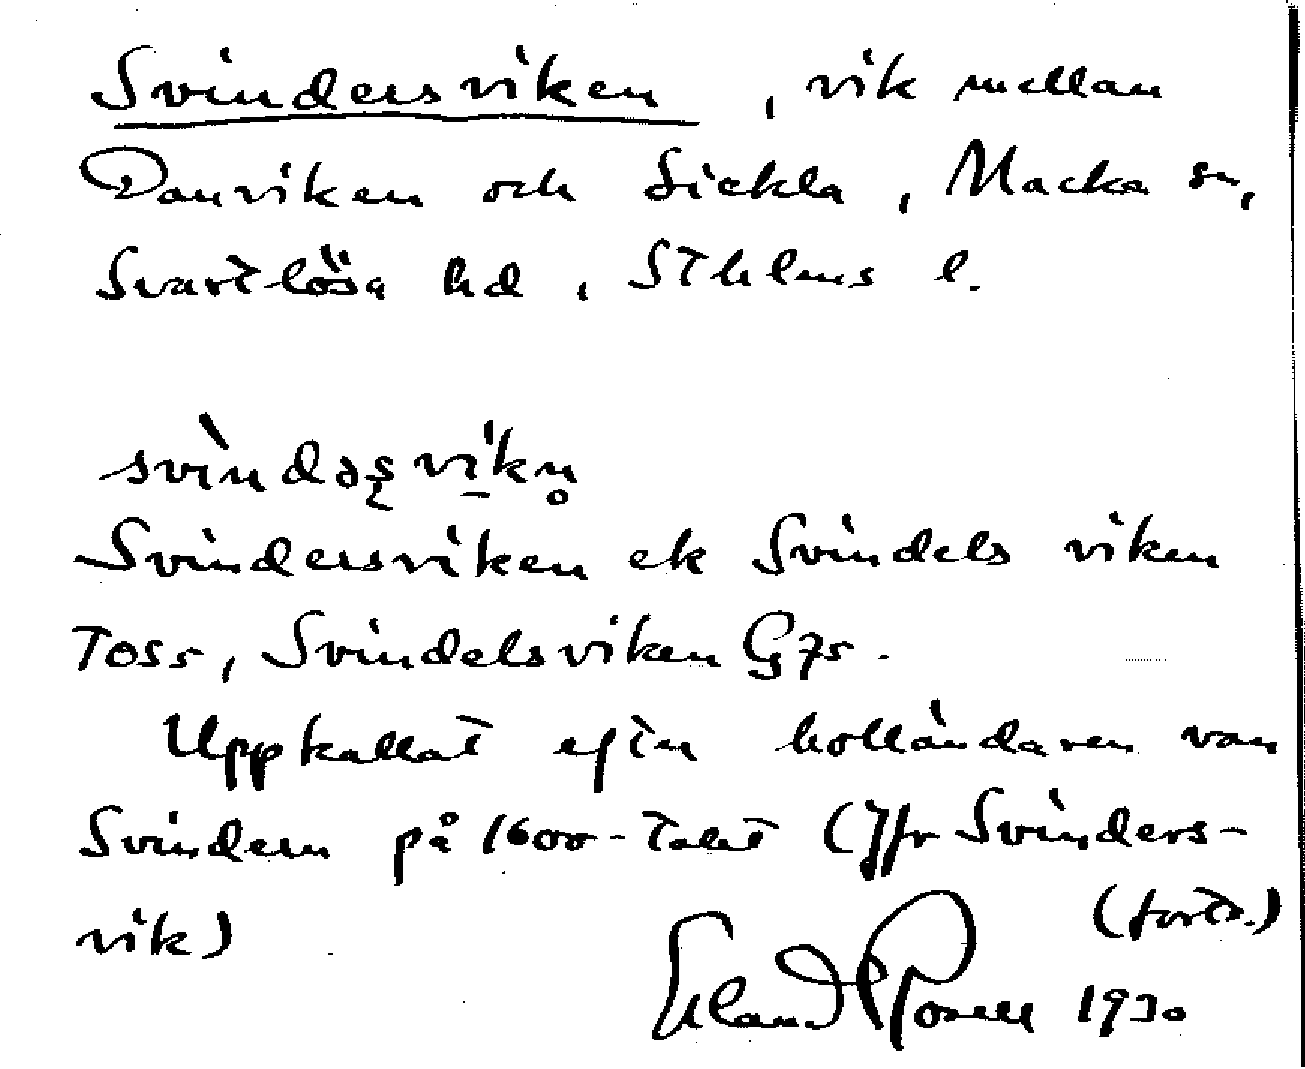 Svindersviken, vik mellan
Danviken och Sickla, Nacka sn,
Svartlösa hd, Sthlms l.
svìndəʂvikn̥
Svindersviken ek Svindels viken
Toss, Svindelsviken G75.
Uppkallat efter holländaren van
Svindern på 1600-talet (Jfr Svinders-
vik)
(forts.)
Erland Rosell 1930